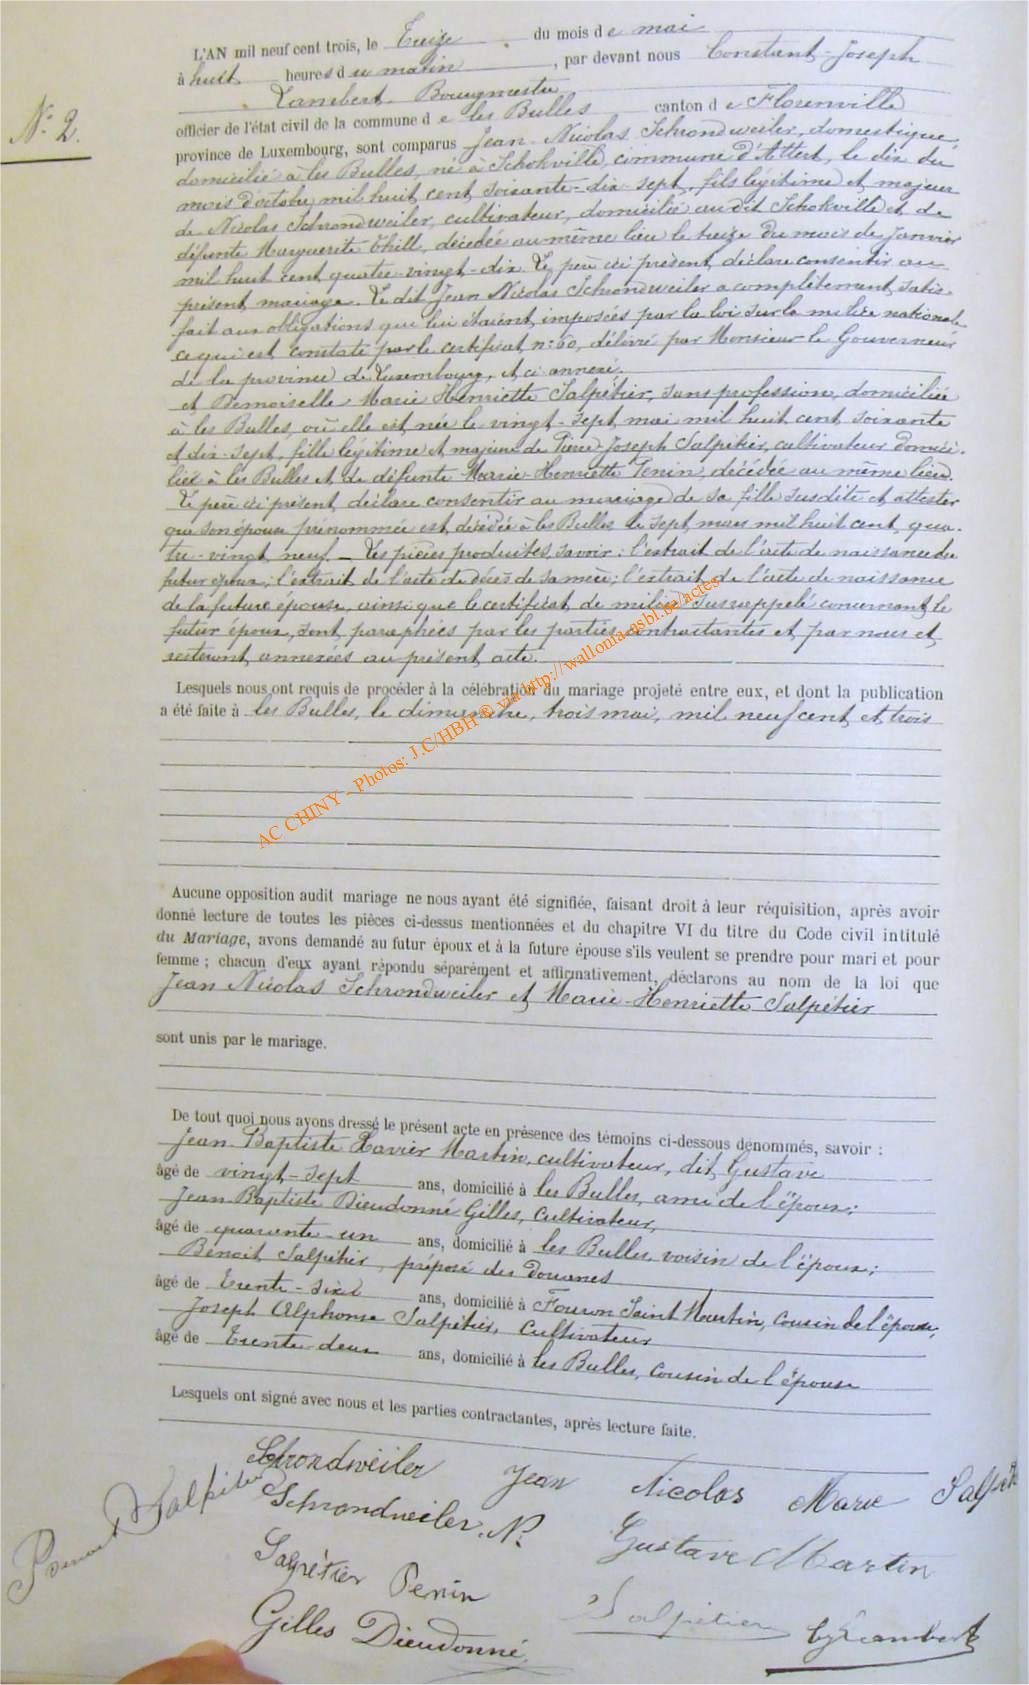 N° 2.
L'AN mil neuf cent trois, le Treize du mois de mai
à huit heures du matin, par devant nous Constant-Joseph
Lambert, Bourgmestre
officier de l'état civil de la commune de les Bulles canton de Florenville
province de Luxembourg, sont comparus Jean Nicolas Schrondweiler, domestique,
domicilié à les Bulles, né à Schokville, commune d'Attert, le dix du
mois d'octobre mil huit cent soixante-dix-sept, fils légitime et majeur
de Nicolas Schrondweiler, cultivateur, domicilié au dit Schokville et de
défunte Marguerite Thill, décédée au même lieu le treize du mois de Janvier
mil huit cent quatre-vingt-dix. Le père ici présent, déclare consentir au
présent mariage. Le dit Jean Nicolas Schrondweiler a complètement satis-
fait aux obligations qui lui étaient imposées par la loi sur la milice nationale
ce qui est constaté par le certificat n: 60, délivré par Monsieur le Gouverneur
de la province de Luxembourg, et ci annexé.
et Demoiselle Marie Henriette Salpétier, sans profession, domiciliée
à les Bulles, où elle est née le vingt-sept mai mil huit cent soixante
et dix-sept, fille légitime et majeure de Pierre-Joseph Salpétier, cultivateur domici-
lié à les Bulles et de défunte Marie-Henriette Jenin, décédée au même lieu.
Le père ici présent, déclare consentir au mariage de sa fille susdite et attester
que son épouse prénommée est décédée à les Bulles le sept mars mil huit cent qua-
tre-vingt neuf. — Les pièces produites, savoir: l'extrait de l'acte de naissance du
futur époux; l'extrait de l'acte de décès de sa mère; l'extrait de l'acte de naissance
de la future épouse, ainsi que le certificat de milice susrappelé concernant le
futur époux, sont paraphées par les parties contractantes et par nous et
resteront annexées au présent acte.
Lesquels nous ont requis de procéder à la célébration du mariage projeté entre eux, et dont la publication
a été faite à les Bulles, le dimanche, trois mai, mil neuf cent et trois
AC CHINY - Photos: J.C/HBH ® via http://wallonia-asbl.be/actes
Aucune opposition audit mariage ne nous ayant été signifiée, faisant droit à leur réquisition, après avoir
donné lecture de toutes les pièces ci-dessus mentionnées et du chapitre VI du titre du Code civil intitulé
du Mariage, avons demandé au futur époux et à la future épouse s'ils veulent se prendre pour mari et pour
femme ; chacun d'eux ayant répondu séparément et affirmativement, déclarons au nom de la loi que
Jean Nicolas Schrondweiler et Marie-Henriette Salpétier
sont unis par le mariage.
De tout quoi nous ayons dressé le présent acte en présence des témoins ci-dessous dénommés, savoir :
Jean-Baptiste Xavier Martin, cultivateur, dit Gustave
âgé de vingt-sept ans, domicilié à les Bulles, ami de l'époux;
Jean Baptiste Dieudonné Gilles, cultivateur,
âgé de quarante-un ans, domicilié à les Bulles, voisin de l'époux;
Benoît Salpétier, préposé des douanes
âgé de Trente-six ans, domicilié à Fouron Saint Martin, cousin de l'épouse,
Joseph Alphonse Salpétier, cultivateur
âgé de Trente-deux ans, domicilié à les Bulles, cousin de l'épouse
Lesquels ont signé avec nous et les parties contractantes, après lecture faite.
Schrondweiler Jean Nicolas Marie Salpét
Schrondweiler. N. Gustave Martin
Benoit Salpétier
Salpétier Salpétier
Gilles Dieudonné Lambert